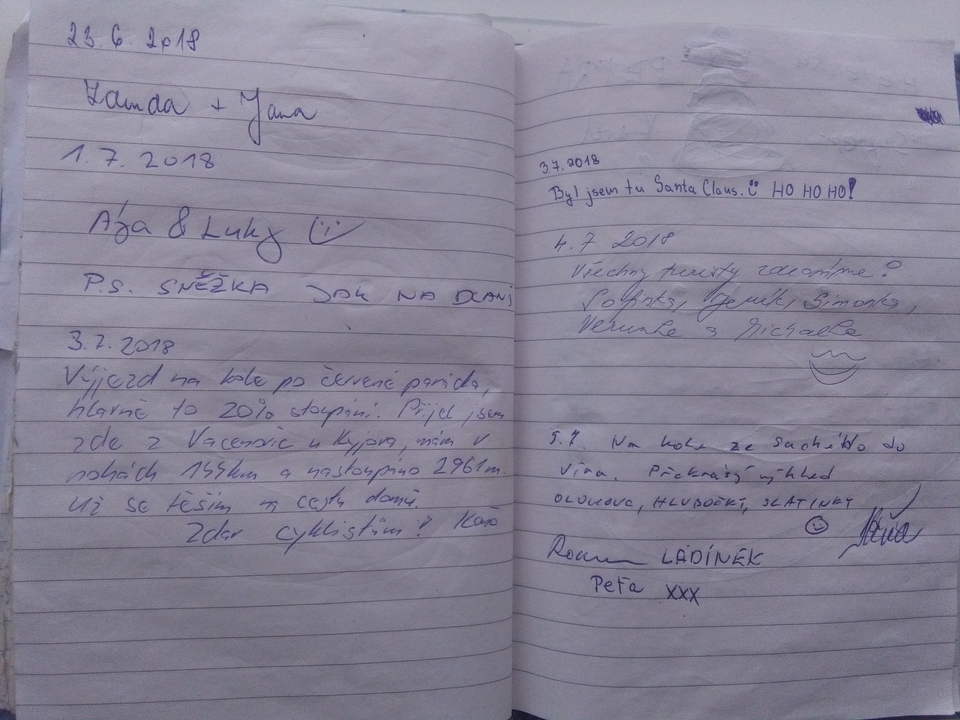 23. 6. 2018
+ Jana
1. 7. 2018
Ája & Luky
P.S. SNĚŽKA JAK NA DLANI
3.7.2018
Výjezd na kole po červené paráda,
hlavně to 20% stoupání. Přijel jsem
zde z Vacenovic u Kyjova, mám v
nohách 144km a nastoupáno 2961m.
Už se těším na cestu domů.
Zdar cyklistům!
3.7.2018
Byl jsem tu Santa Claus. HO HO HO!
4.7 2018
Všechny turisty zdravíme!
Jeník, Simonka,
Verunka a Michalka
5.7. Na kole ze Suchého do
Vína. Překrásný výhled
OLOMOUC, HLUBOČKY, SLATINKY
Roman LÁDÍNEK
Peťa XXX